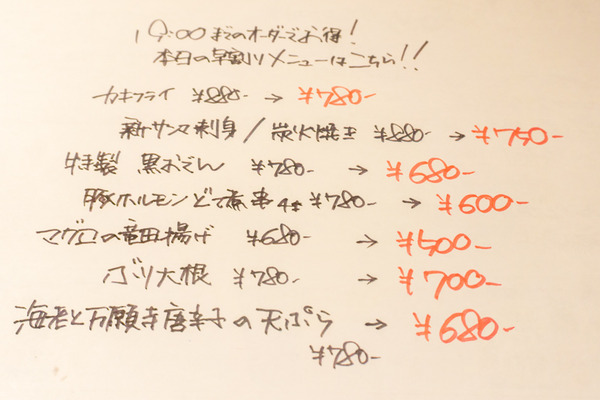 19:00までのオーダーでお得!
本日の早割りメニューはこちら!!
カキフライ ¥880- → ¥780-
新サンマ刺身/炭火焼き ¥880- → ¥750-
特製 黒おでん ¥780- → ¥680-
豚ホルモンどて煮 ¥780- → ¥600-
マグロの竜田揚げ ¥680- → ¥500-
ブリ大根 ¥780- → ¥700-
海老と万願寺唐辛子の天ぷら → ¥680-
¥780-